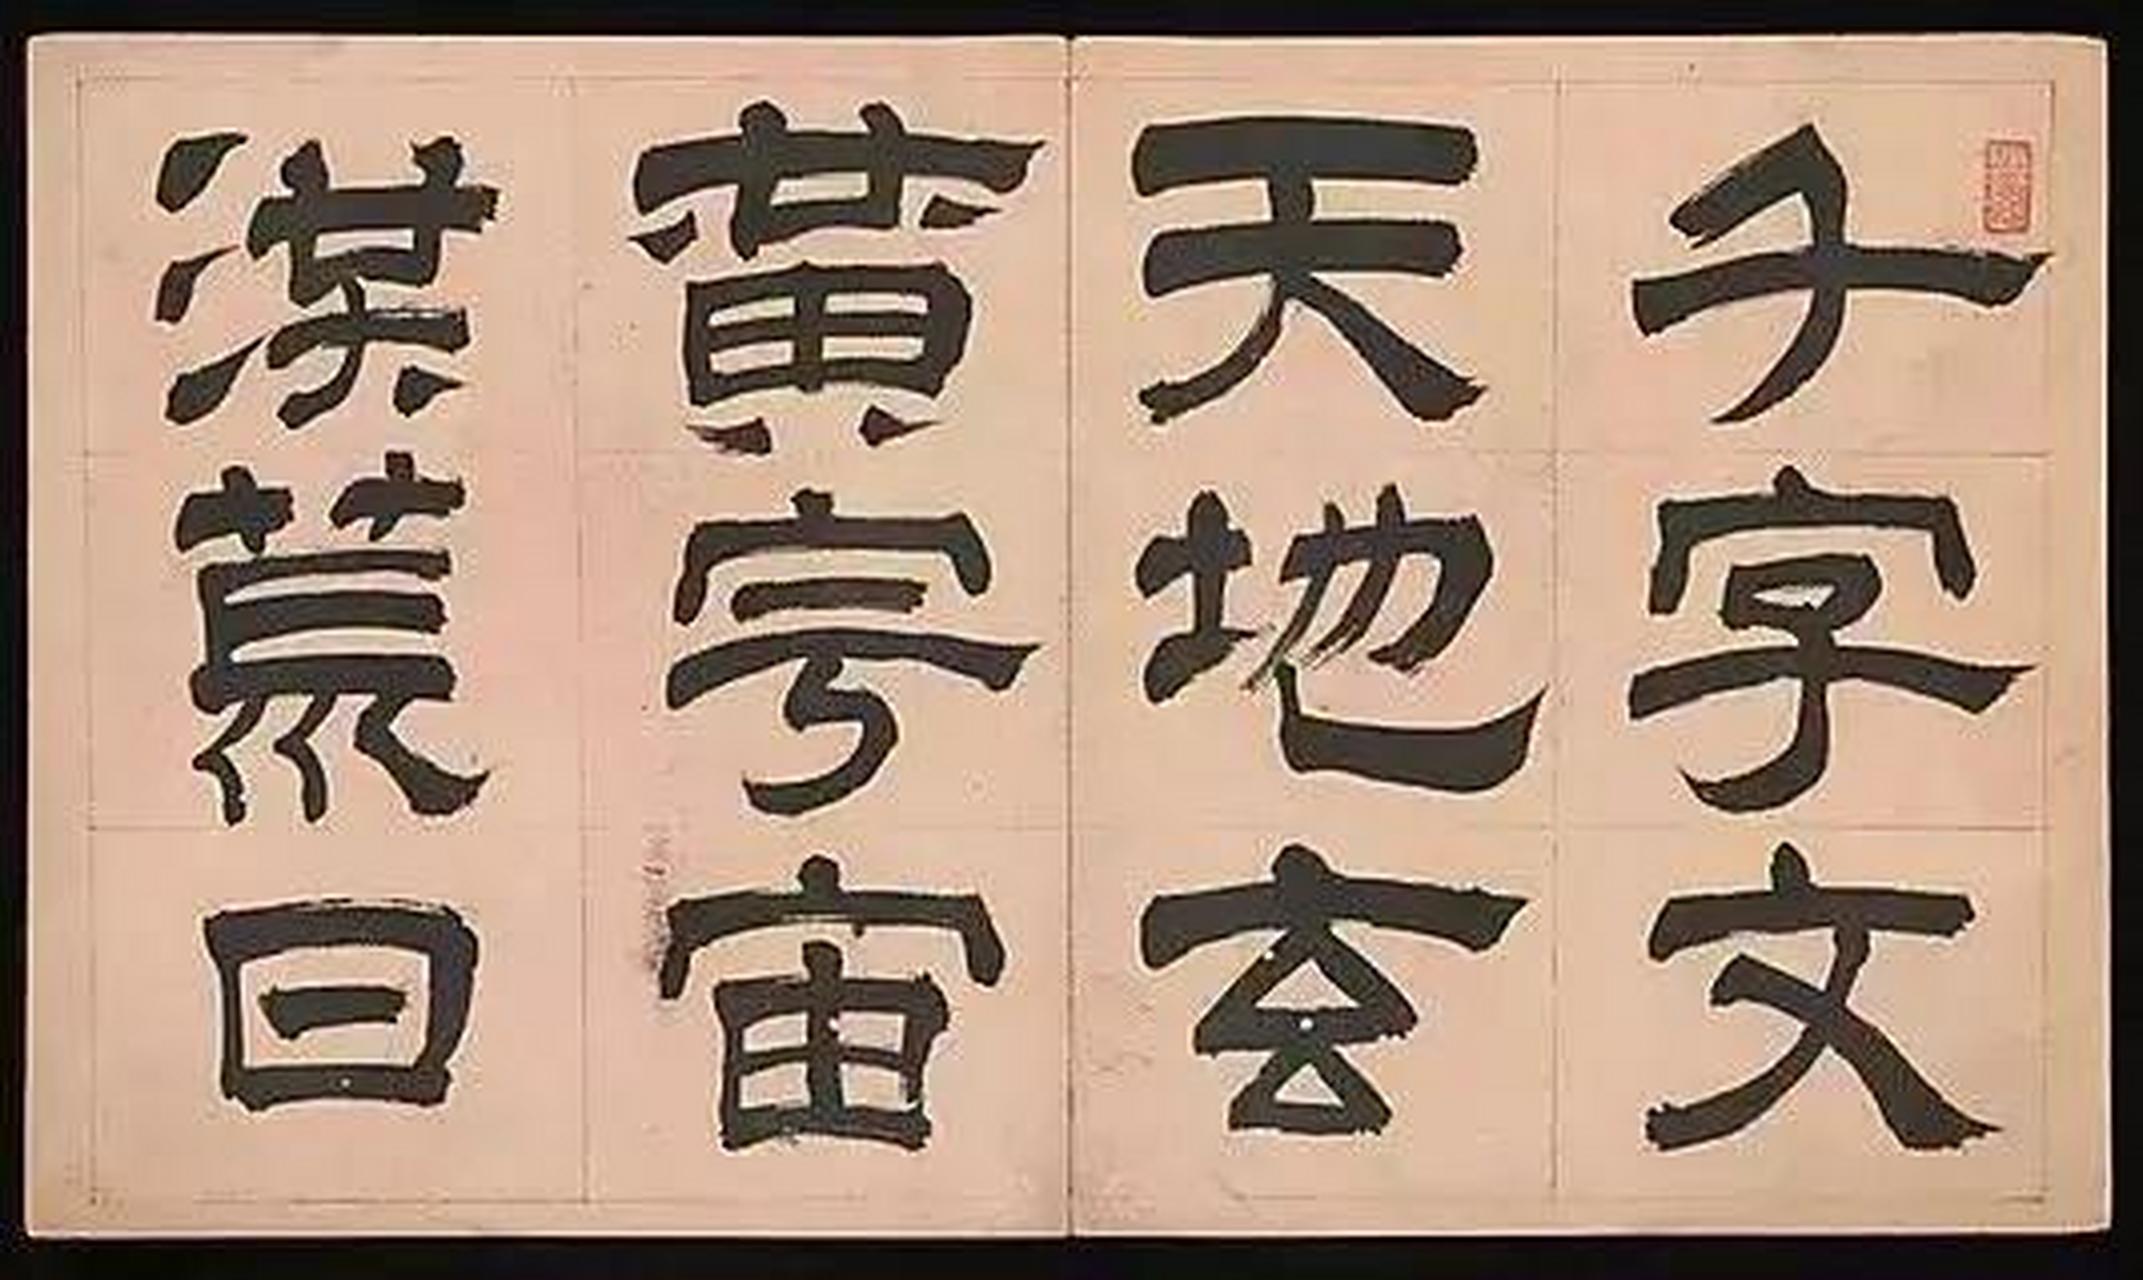 千字文
天地玄
黃宇宙
洪荒日